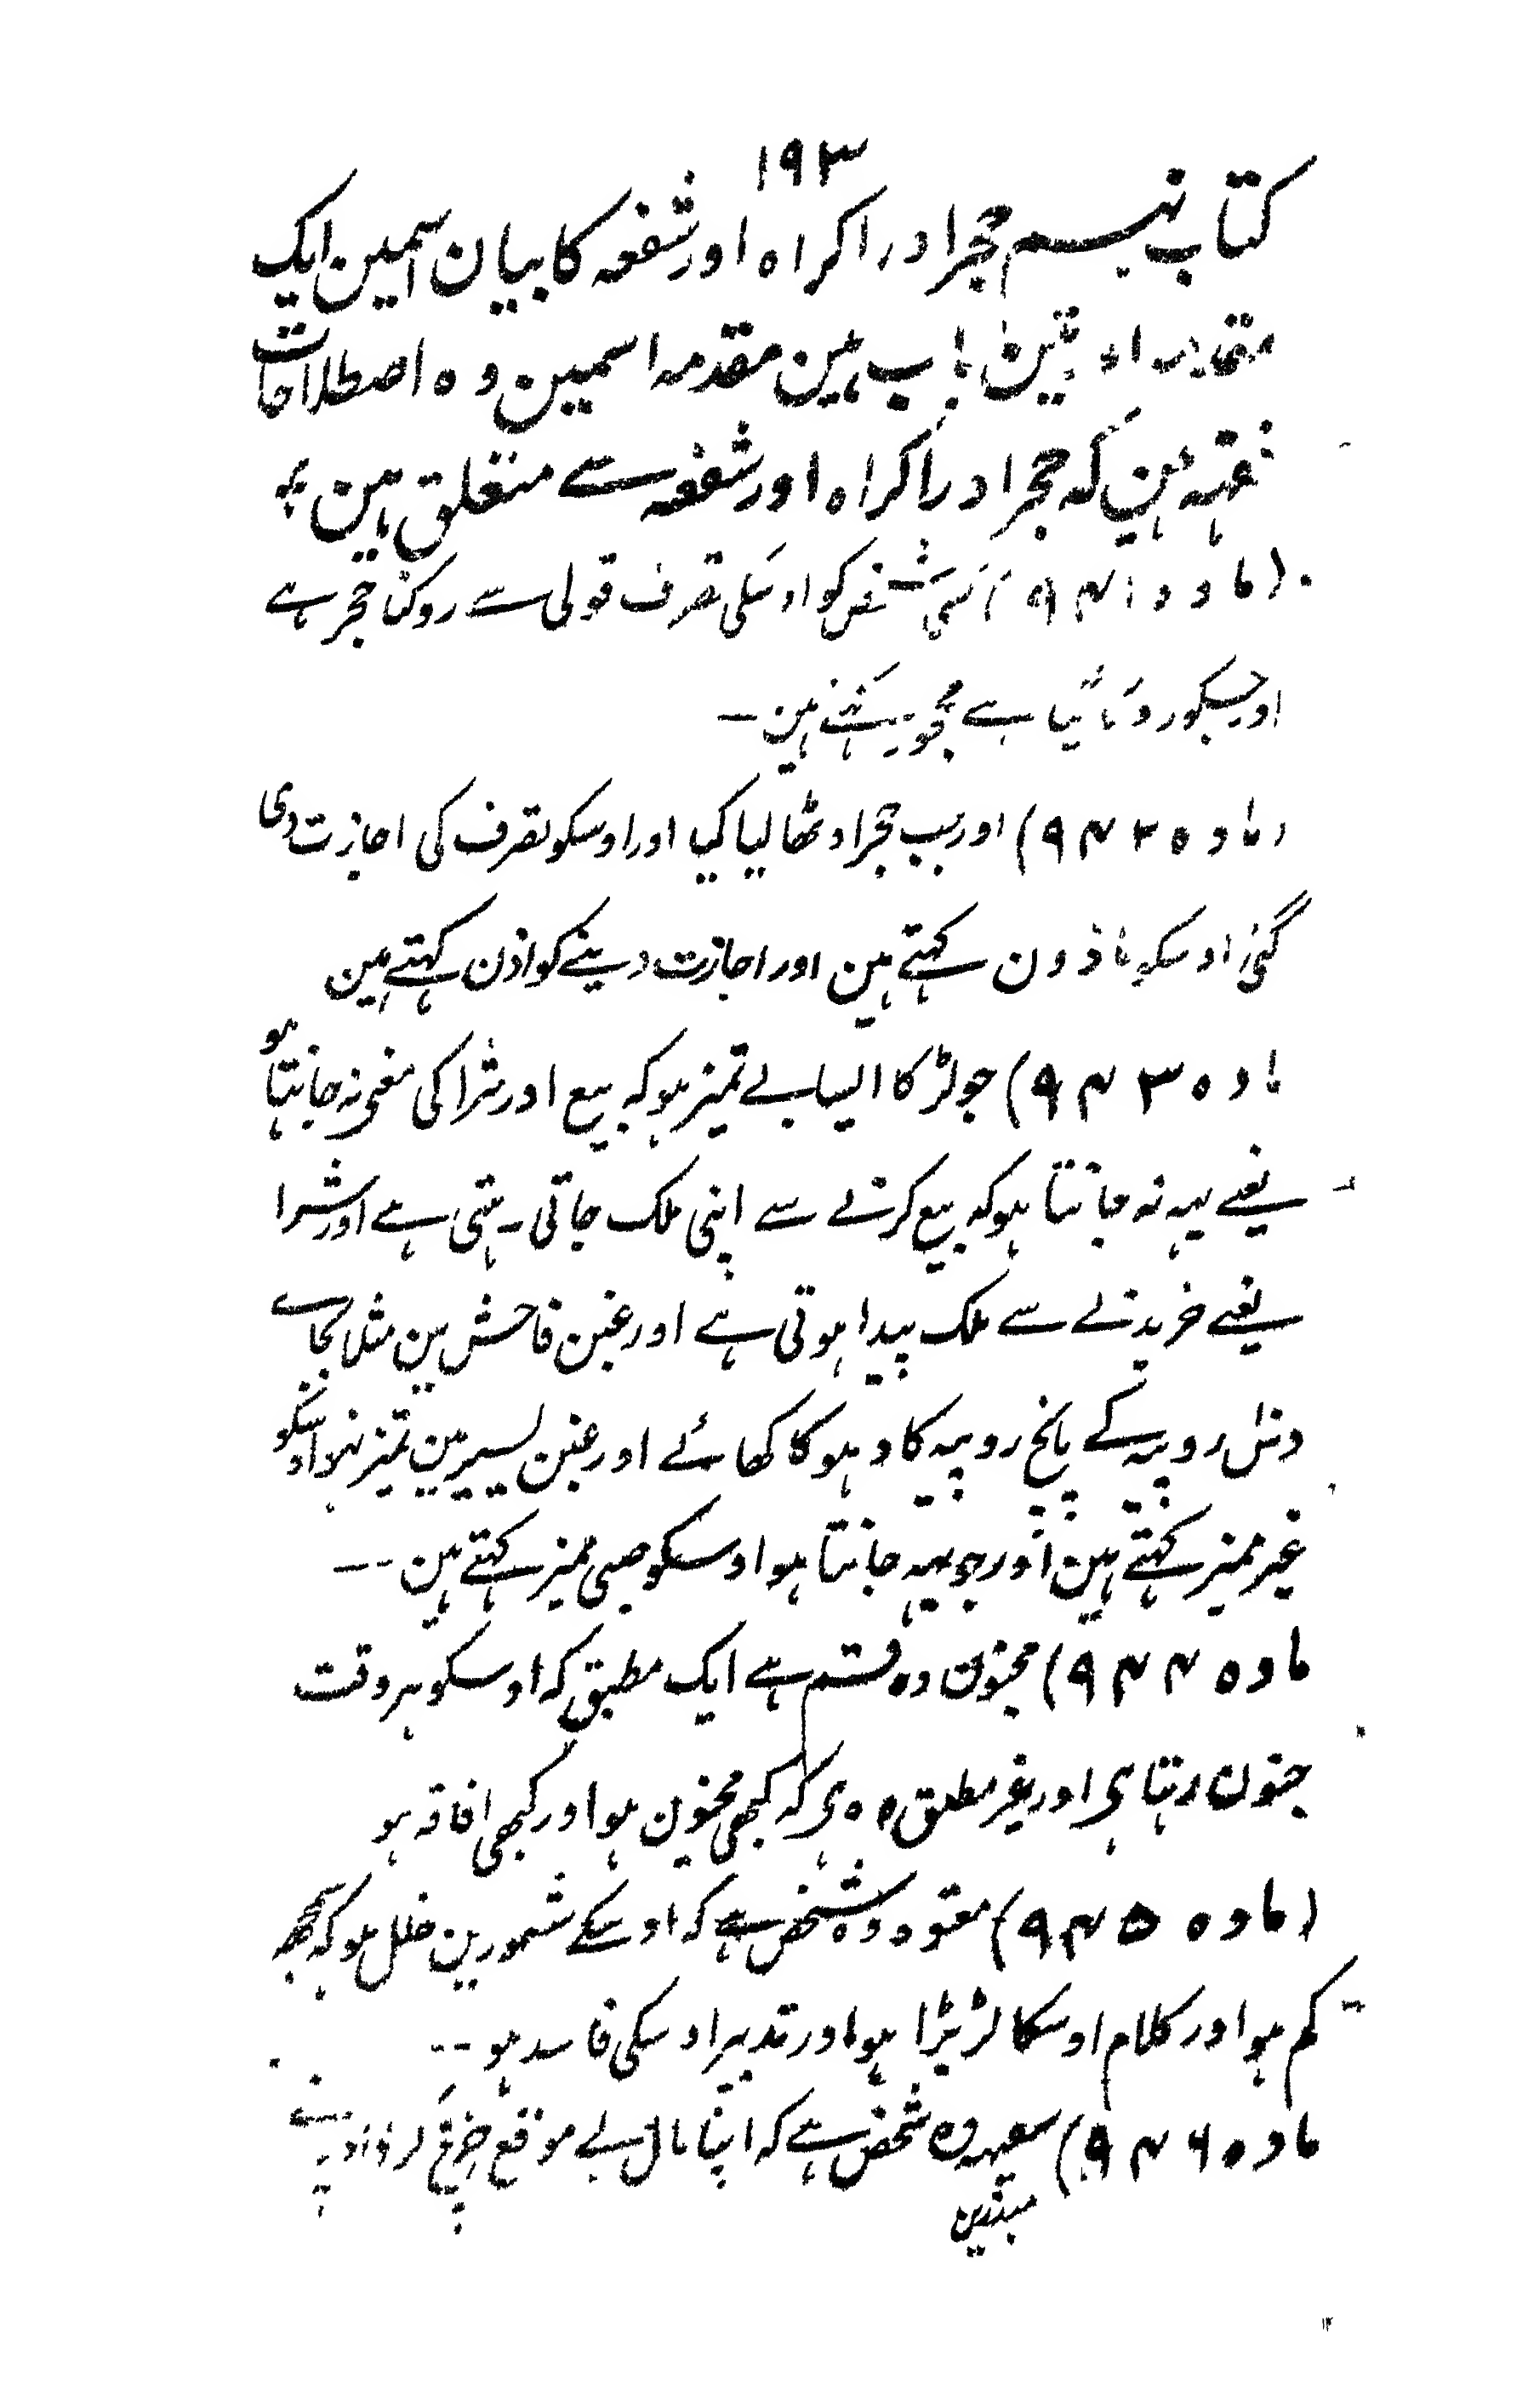 ۱۹۳
کتاب نہم حجر اور اکراہ اور شفعہ کا بیان اسمین ایک
مقدمہ اور تین باب ہین مقدمہ اسمین وہ اصطلاحات
فقہیہ ہین کہ حجر اور اکراہ اور شفعہ سے متعلق ہین
(مادہ ۹۴۱) کسی شخص کو اوسکی تصرف قولی سے روکنا حجر ہے
اور جسکو روکا گیا ہے محجور کہتے ہین ـ
(مادہ ۹۴۲) اور جب حجر اوٹھا لیا گیا اور اوسکو تصرف کی اجازت دی
گئی اوسکو ماذون کہتے ہین اور اجازت دینے کو اذن کہتے ہین
مادہ ۹۴۳) جو لڑکا ایسا بے تمیز ہو کہ بیع اور شرا کی معنی نہ جانتا ہو
یعنے یہہ نہ جانتا ہو کہ بیع کرنے سے اپنی ملک جاتی رہتی ہے اور شرا
یعنے خریدنے سے ملک پیدا ہوتی ہے اور غبن فاحش مین مثلا بجاے
دس روپیہ کے پانچ روپیہ کا دہوکا کھائے اور غبن یسیر مین تمیز نہو اوسکو
غیر ممیز کہتے ہین اور جو یہہ جانتا ہو اوسکو صبی ممیز کہتے ہین ـ ـ
مادہ ۹۴۴) مجنون دو قسم ہے ایک مطبق کہ اوسکو ہر وقت
جنون رہتا ہی اور غیر مطبق وہ ہی کہ کبھی مجنون ہو اور کبھی افاقہ ہو
(مادہ ۹۴۵) معتوہ وہ شخص ہے کہ اوسکے شعور مین خلل ہو کہ سمجھہ
کم ہو اور کلام اوسکا لڑبڑا ہو اور تدبیر اوسکی فاسد ہو ـ ـ
مادہ ۹۴۶) سفیہہ وہ شخص ہے کہ اپنا مال بے موقع خرچ کر
مبذرین